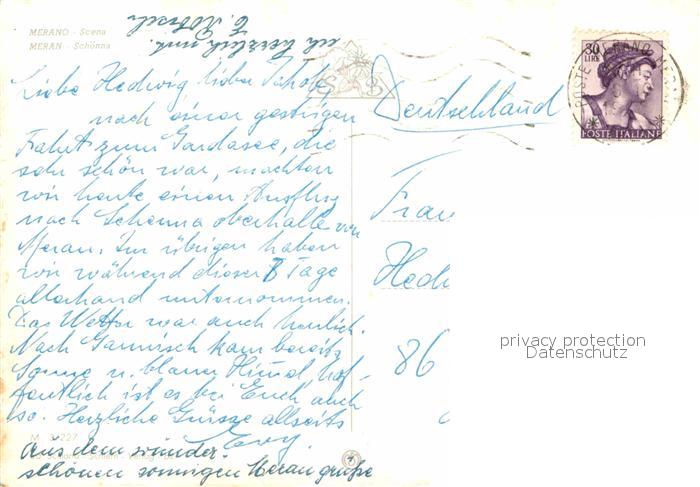 MERANO - Scena
MERAN - Schönna
Liebe Hedwig, lieber
nach einer gestrigen
Fahrt zum Gardasee, die
sehr schön war, machten
wir heute einen Ausflug
nach Schenna oberhalb von
Meran. Im übrigen haben
wir während dieser 8 Tage
allerhand unternommen.
Das Wetter war auch herrlich.
Nach Garmisch kam bereits
Sonne u. blauer Himmel, hof-
fentlich ist es bei Euch auch
so. Herzliche Grüsse allseits
Evy.
Aus dem wunder-
schönen sonnigen Meran grüße
ich herzlich mit
Deutschland
Frau
Hed
86
30
LIRE
POSTE ITALIANE
privacy protection
Datenschutz